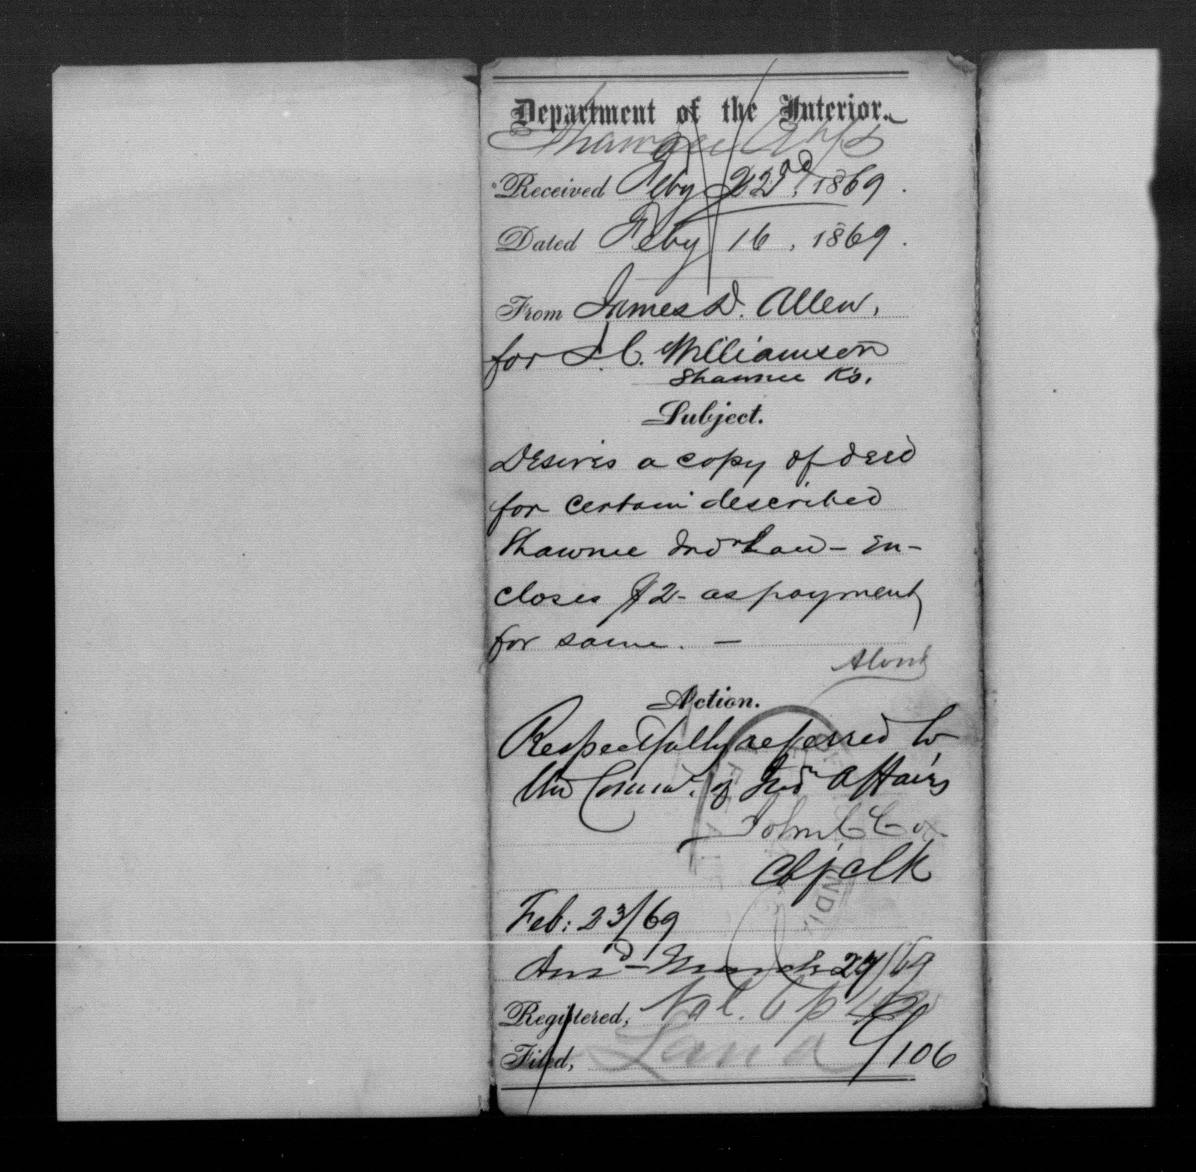 Department of the Interior.
Shawnee
Received Feby 22nd, 1869.
Dated Feby 16, 1869.
From James D. Allen,
for C. Williamson
Shawnee Ks.
Subject.
Desires a copy of deed
for certain described
Shawnee Indn Land - En-
closes $2- as payment
for same. -
Action.
Respectfully referred to
the Comr. of Indn Affairs
John C Cox
Chf Clk
Feb: 23/69
Ansd - March 27/69
Registered, Vol. 6 p
Filed, Land C/106